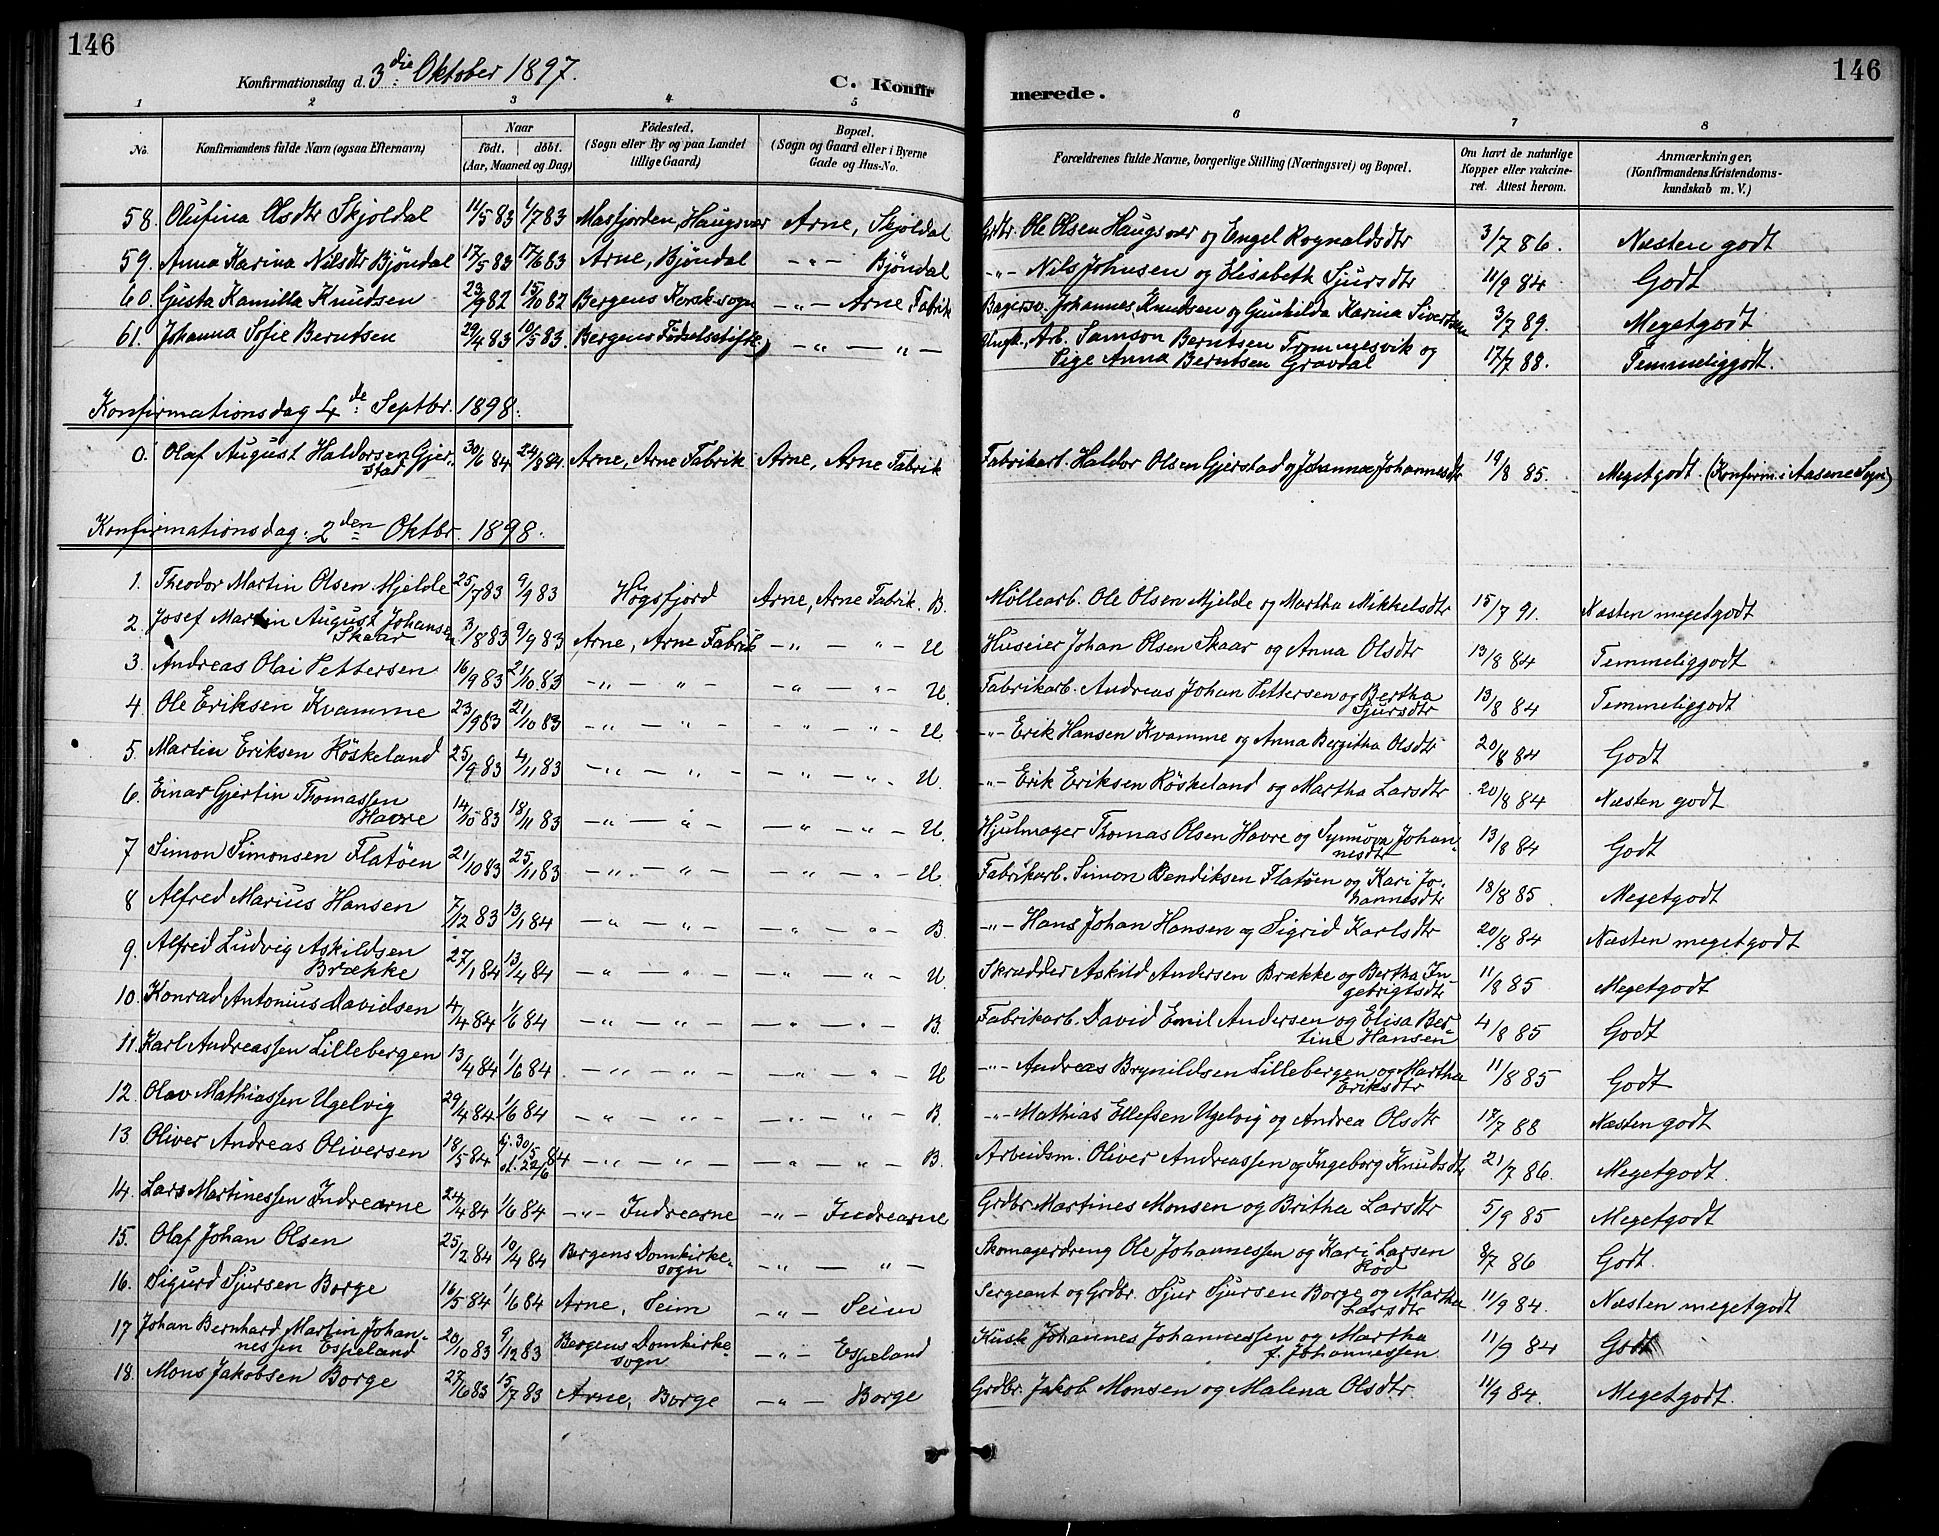 146
146
Konfirmationsdag d. 3die Oktober 1897.
C. Konfirmerede.
1 2 3 4 5 6 7 8
No. | Konfirmandens fulde Navn (ogsaa Efternavn) | Naar født. døbt. (Aar, Maaned og Dag) | Fødested. (Sogn eller By og paa Landet tillige Gaard) | Bopæl. (Sogn og Gaard eller i Byerne Gade og Hus-No. | Forældrenes fulde Navne, borgerlige Stilling (Næringsvei) og Bopæl. | Om havt de naturlige Kopper eller vakcineret. Attest herom. | Anmærkninger. (Konfirmandens Kristendomskundskab m. V.)
58. Olufina Olsdtr Skjoldal 11/5 83 1/7 83 Masfjorden, Haugsvær Arne, Skjoldal Grdbr. Ole Olsen Haugsvær og Engel Rognaldsdtr 3/7 86. Næsten godt
59. Anna Karina Nilsdtr Bjöndal 17/5 83 17/6 83 Arne, Bjöndal -"- Bjöndal -"- Nils Johnsen og Elisabeth Sjursdtr 11/9 84. Godt
60. Gusta Kamilla Knudsen 23/9 82 15/10 82 Bergens Korsksogn -"- Arne Fabrik Bagersv. Johannes Knudsen og Gunhilda Karina Sivertsen 3/7 89. Megetgodt
61. Johanna Sofie Berntsen 29/4 83 10/5 83. Bergens Födselsstifte) -"- -"- Ungk., Arb. Samson Berntsen Trommesvik og Pige Anna Berntsen Gravdal 17/7 88. Temmeliggodt.
Konfirmationsdag 4de Septbr. 1898.
0. Olaf August Haldorsen Gjerstad 30/6 84 24/8 84. Arne, Arne Fabrik Arne, Arne Fabrik Fabrikarb. Haldor Olsen Gjerstad og Johanna Johannesdtr 19/8 85. Megetgodt. (Konfirm. i Aasene Sogn)
Konfirmationsdag: 2den Oktbr. 1898.
1. Theodor Martin Olsen Mjelde 25/7 83 9/9 83 Högsfjord Arne, Arne Fabrik. B. Möllearb. Ole Olsen Mjelde og Martha Mikkelsdtr 15/7 91. Næsten megetgodt
2. Josef Martin August Johansen Skaar 3/8 83 9/9 83 Arne, Arne Fabrik -"- -"- U Huseier Johan Olsen Skaar og Anna Olsdtr 13/8 84 Temmeliggodt
3. Andreas Olai Pettersen 16/9 83 21/10 83 -"- -"- -"- -"- U. Fabrikarb. Andreas Johan Pettersen og Bertha Sjursdtr 13/8 84 Temmeliggodt
4. Ole Eriksen Kvamme 23/9 83 21/10 83 -"- -"- -"- -"- U -"- Erik Hansen Kvamme og Anna Bergitha Olsdtr 20/8 84 Godt
5. Martin Eriksen Röskeland 25/9 83 4/11 83 -"- -"- -"- -"- U. -"- Erik Eriksen Röskeland og Martha Larsdtr 20/8 84 Næsten godt
6. Einar Gjertin Thomassen Havre 14/10 83 18/11 83 -"- -"- -"- -"- U. Hjulmager Thomas Olsen Havre og Synnöva Johannesdtr 13/8 84 Godt
7 Simon Simonsen Flatöen 21/10 83 25/11 83 -"- -"- -"- -"- U. Fabrikarb. Simon Bendiksen Flatöen og Kari Johannesdtr 18/8 85 Megetgodt
8 Alfred Marius Hansen 7/12 83 13/1 84 -"- -"- -"- -"- B. -"- Hans Johan Hansen og Sigrid Karlsdtr 20/8 84 Næsten megetgodt
9. Alfred Ludvig Askildsen Brække 27/1 84 13/4 84 -"- -"- -"- -"- U Skrædder Askild Andersen Brække og Bertha Ingebrigtsdtr 11/8 85 Megetgodt
10. Konrad Antonius Davidsen 4/4 84 1/6 84 -"- -"- -"- -"- B. Fabrikarb. David Emil Andersen og Elisa Bertine Hansen 4/8 85 Godt
11. Karl Andreassen Lillebergen 13/4 84 1/6 84. -"- -"- -"- -"- U -"- Andreas Brynildsen Lillebergen og Martha Eriksdtr 11/8 85 Godt
12. Olav Mathiassen Ugelvig 29/4 84 1/6 84 -"- -"- -"- -"- B. -"- Mathias Ellefsen Ugelvig og Andrea Olsdtr 17/7 88 Næsten godt
13. Oliver Andreas Oliversen 18/5 84 hj. 30/5 84 st. 22/6 -"- -"- -"- -"- B. Arbeidsm. Oliver Andreassen og Ingeborg Knudsdtr 21/7 86. Megetgodt
14. Lars Martinessen Indrearne 24/4 84 1/6 84 -"- Indrearne -"- Indrearne Grdbr. Martines Monsen og Britha Larsdtr 5/9 85 Megetgodt
15. Olaf Johan Olsen 25/2 84 10/4 84 Bergens Domkirkesogn -"- -"- Skomagerdreng Ole Johannessen og Kari Larsen Röd 8/7 86 Godt.
16. Sigurd Sjursen Borge 16/5 84 1/6 84 Arne, Seim -"- Seim Sergeant og Grdbr. Sjur Sjursen Borge og Martha Larsdtr 11/9 84. Næsten megetgodt
17 Johan Bernhard Martin Johannessen Espeland 20/10 83 9/12 83 Bergens Domkirkesogn -"- Espeland Kusk Johannes Johannessen og Martha f. Johannessen 11/9 84 Godt
18. Mons Jakobsen Borge 27/6 83 15/7 83 Arne, Borge -"- Borge Grdbr. Jakob Monsen og Malena Olsdtr. 11/9 84. Megetgodt.